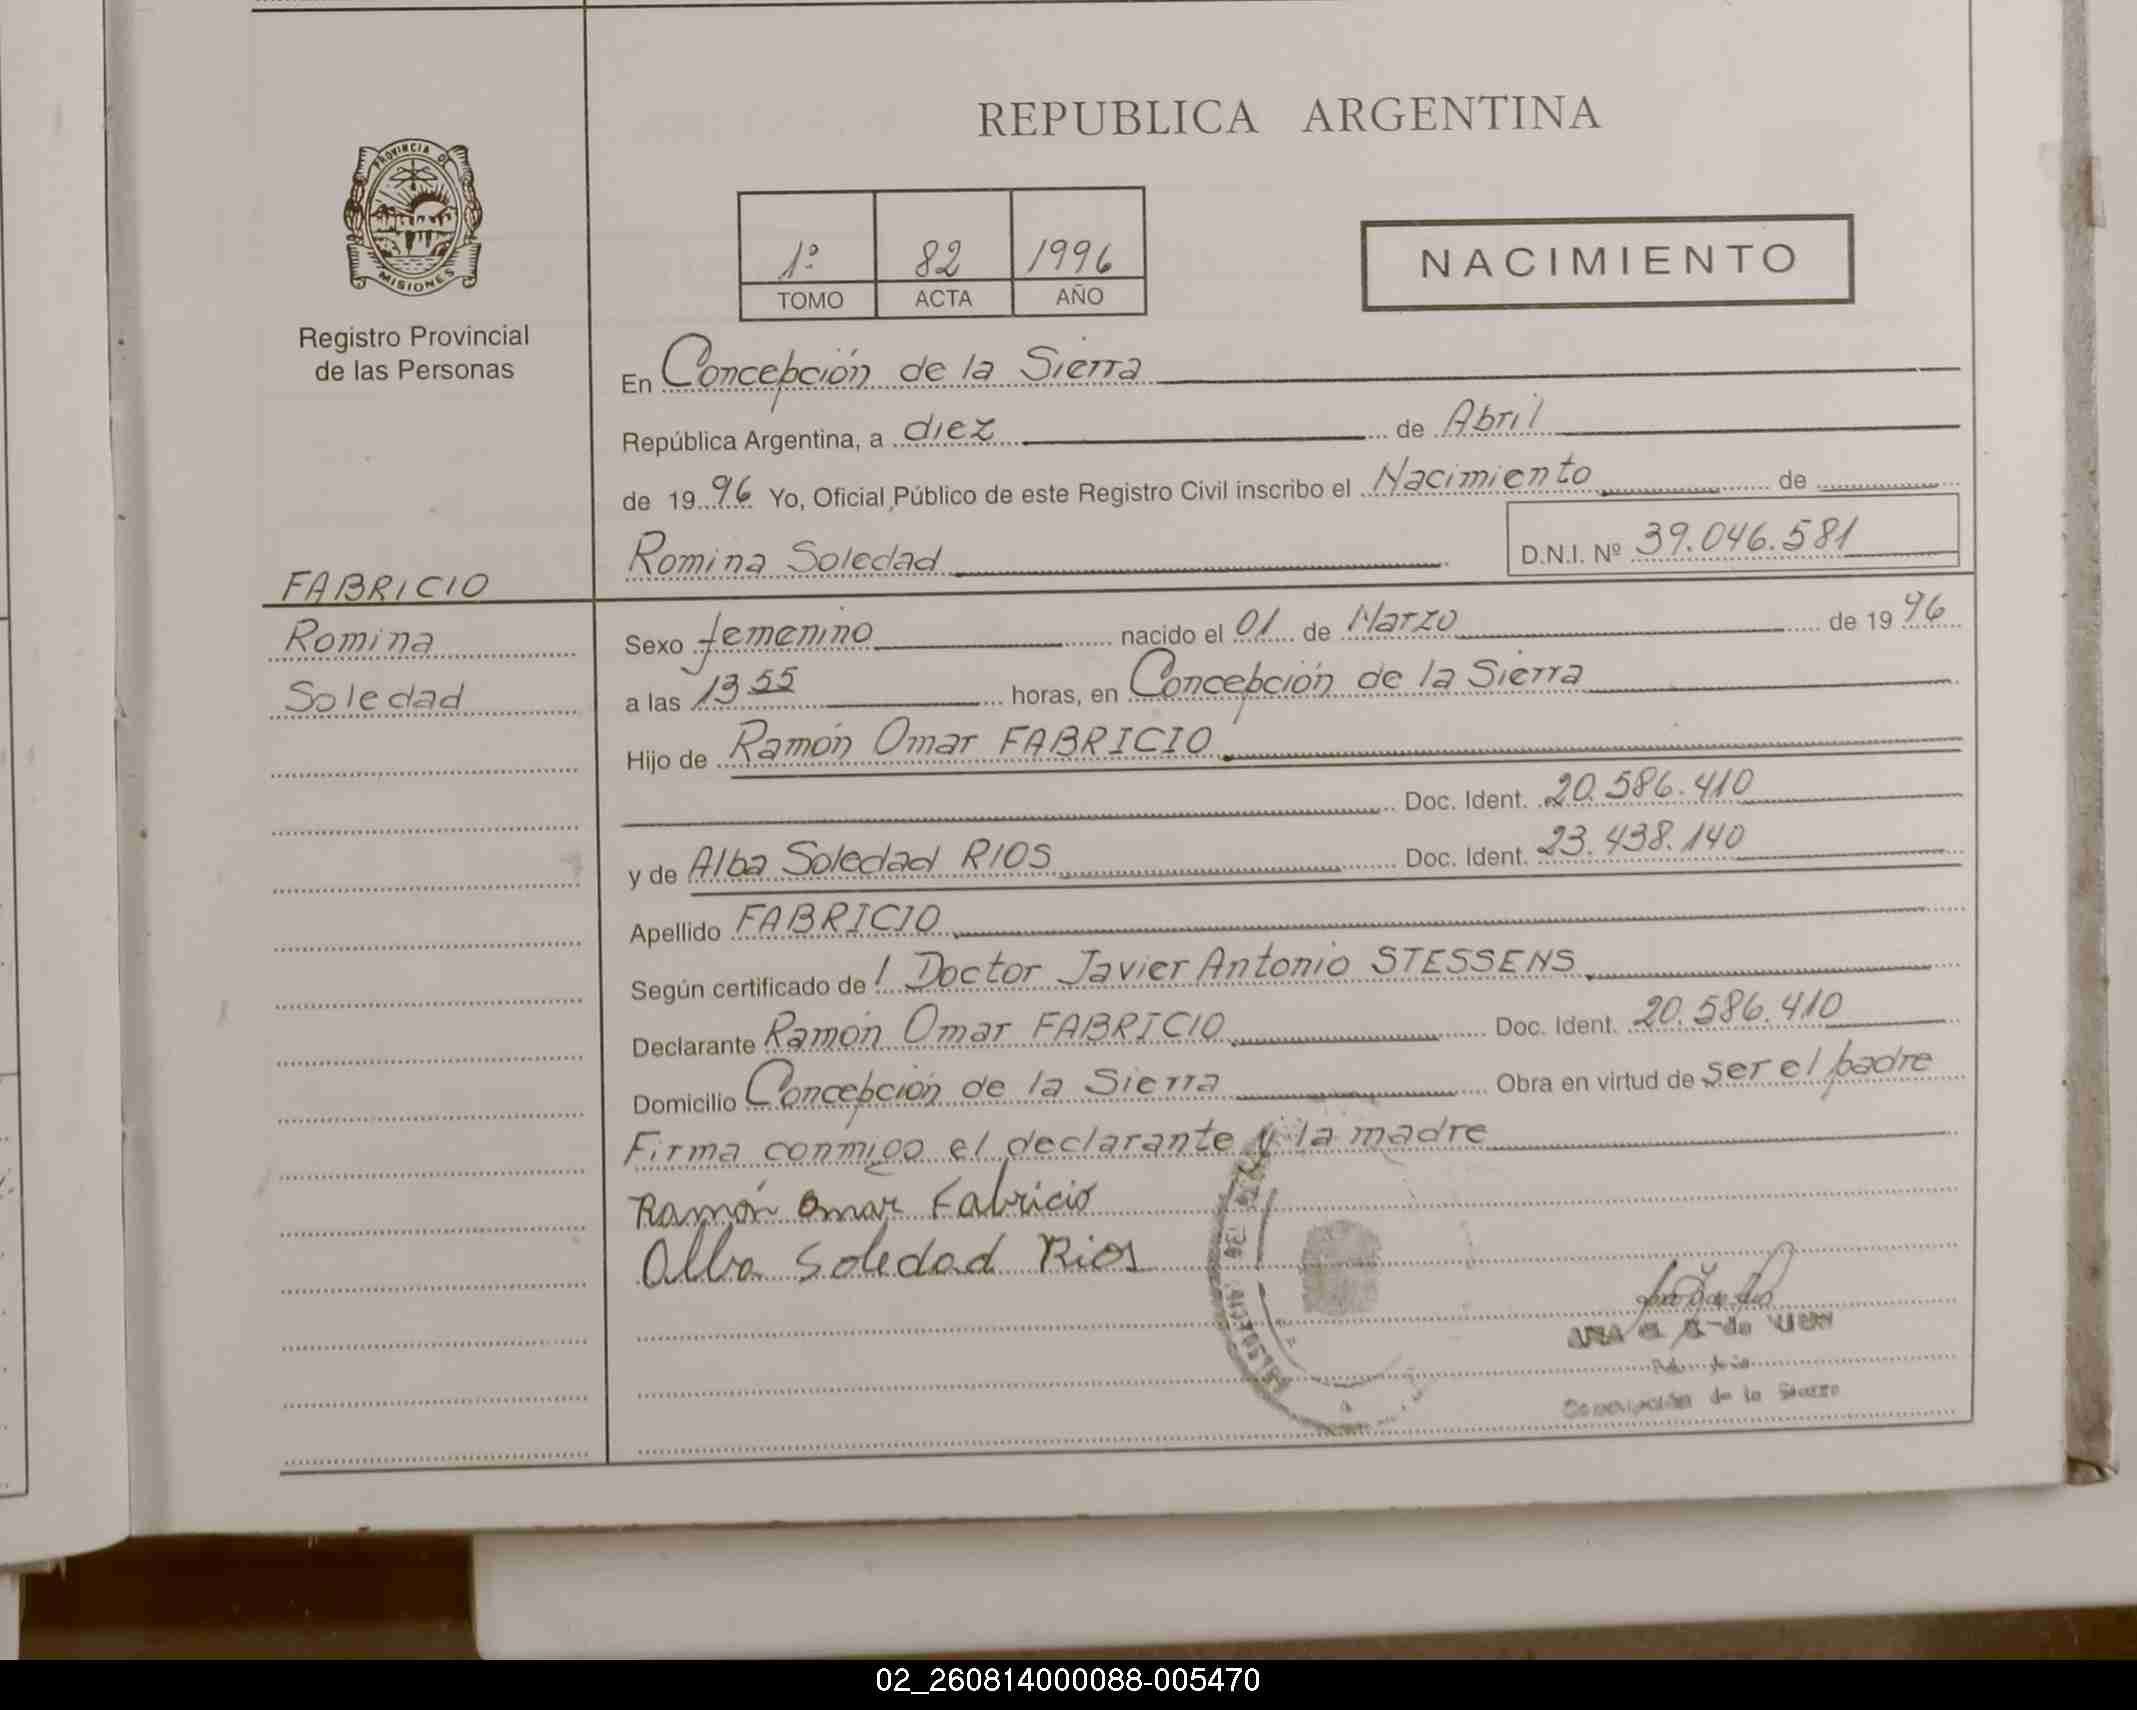 REPUBLICA ARGENTINA
PROVINCIA DE
MISIONES
Registro Provincial
de las Personas
1º 82 1996
TOMO ACTA AÑO
NACIMIENTO
En Concepción de la Sierra
República Argentina, a diez de Abril
de 1996 Yo, Oficial Público de este Registro Civil inscribo el Nacimiento de
Romina Soledad D.N.I. Nº 39.046.581
FABRICIO
Romina
Soledad
Sexo femenino nacido el 01 de Marzo de 1996
a las 13 55 horas, en Concepción de la Sierra
Hijo de Ramón Omar FABRICIO
Doc. Ident. 20.586.410
y de Alba Soledad RIOS Doc. Ident. 23.438.140
Apellido FABRICIO
Según certificado del Doctor Javier Antonio STESSENS
Declarante Ramón Omar FABRICIO Doc. Ident. 20.586.410
Domicilio Concepción de la Sierra Obra en virtud de ser el padre
Firma conmigo el declarante y la madre
Ramón Omar Fabricio
Alba Soledad Rios
Concepción de la Sierra
02_260814000088-005470